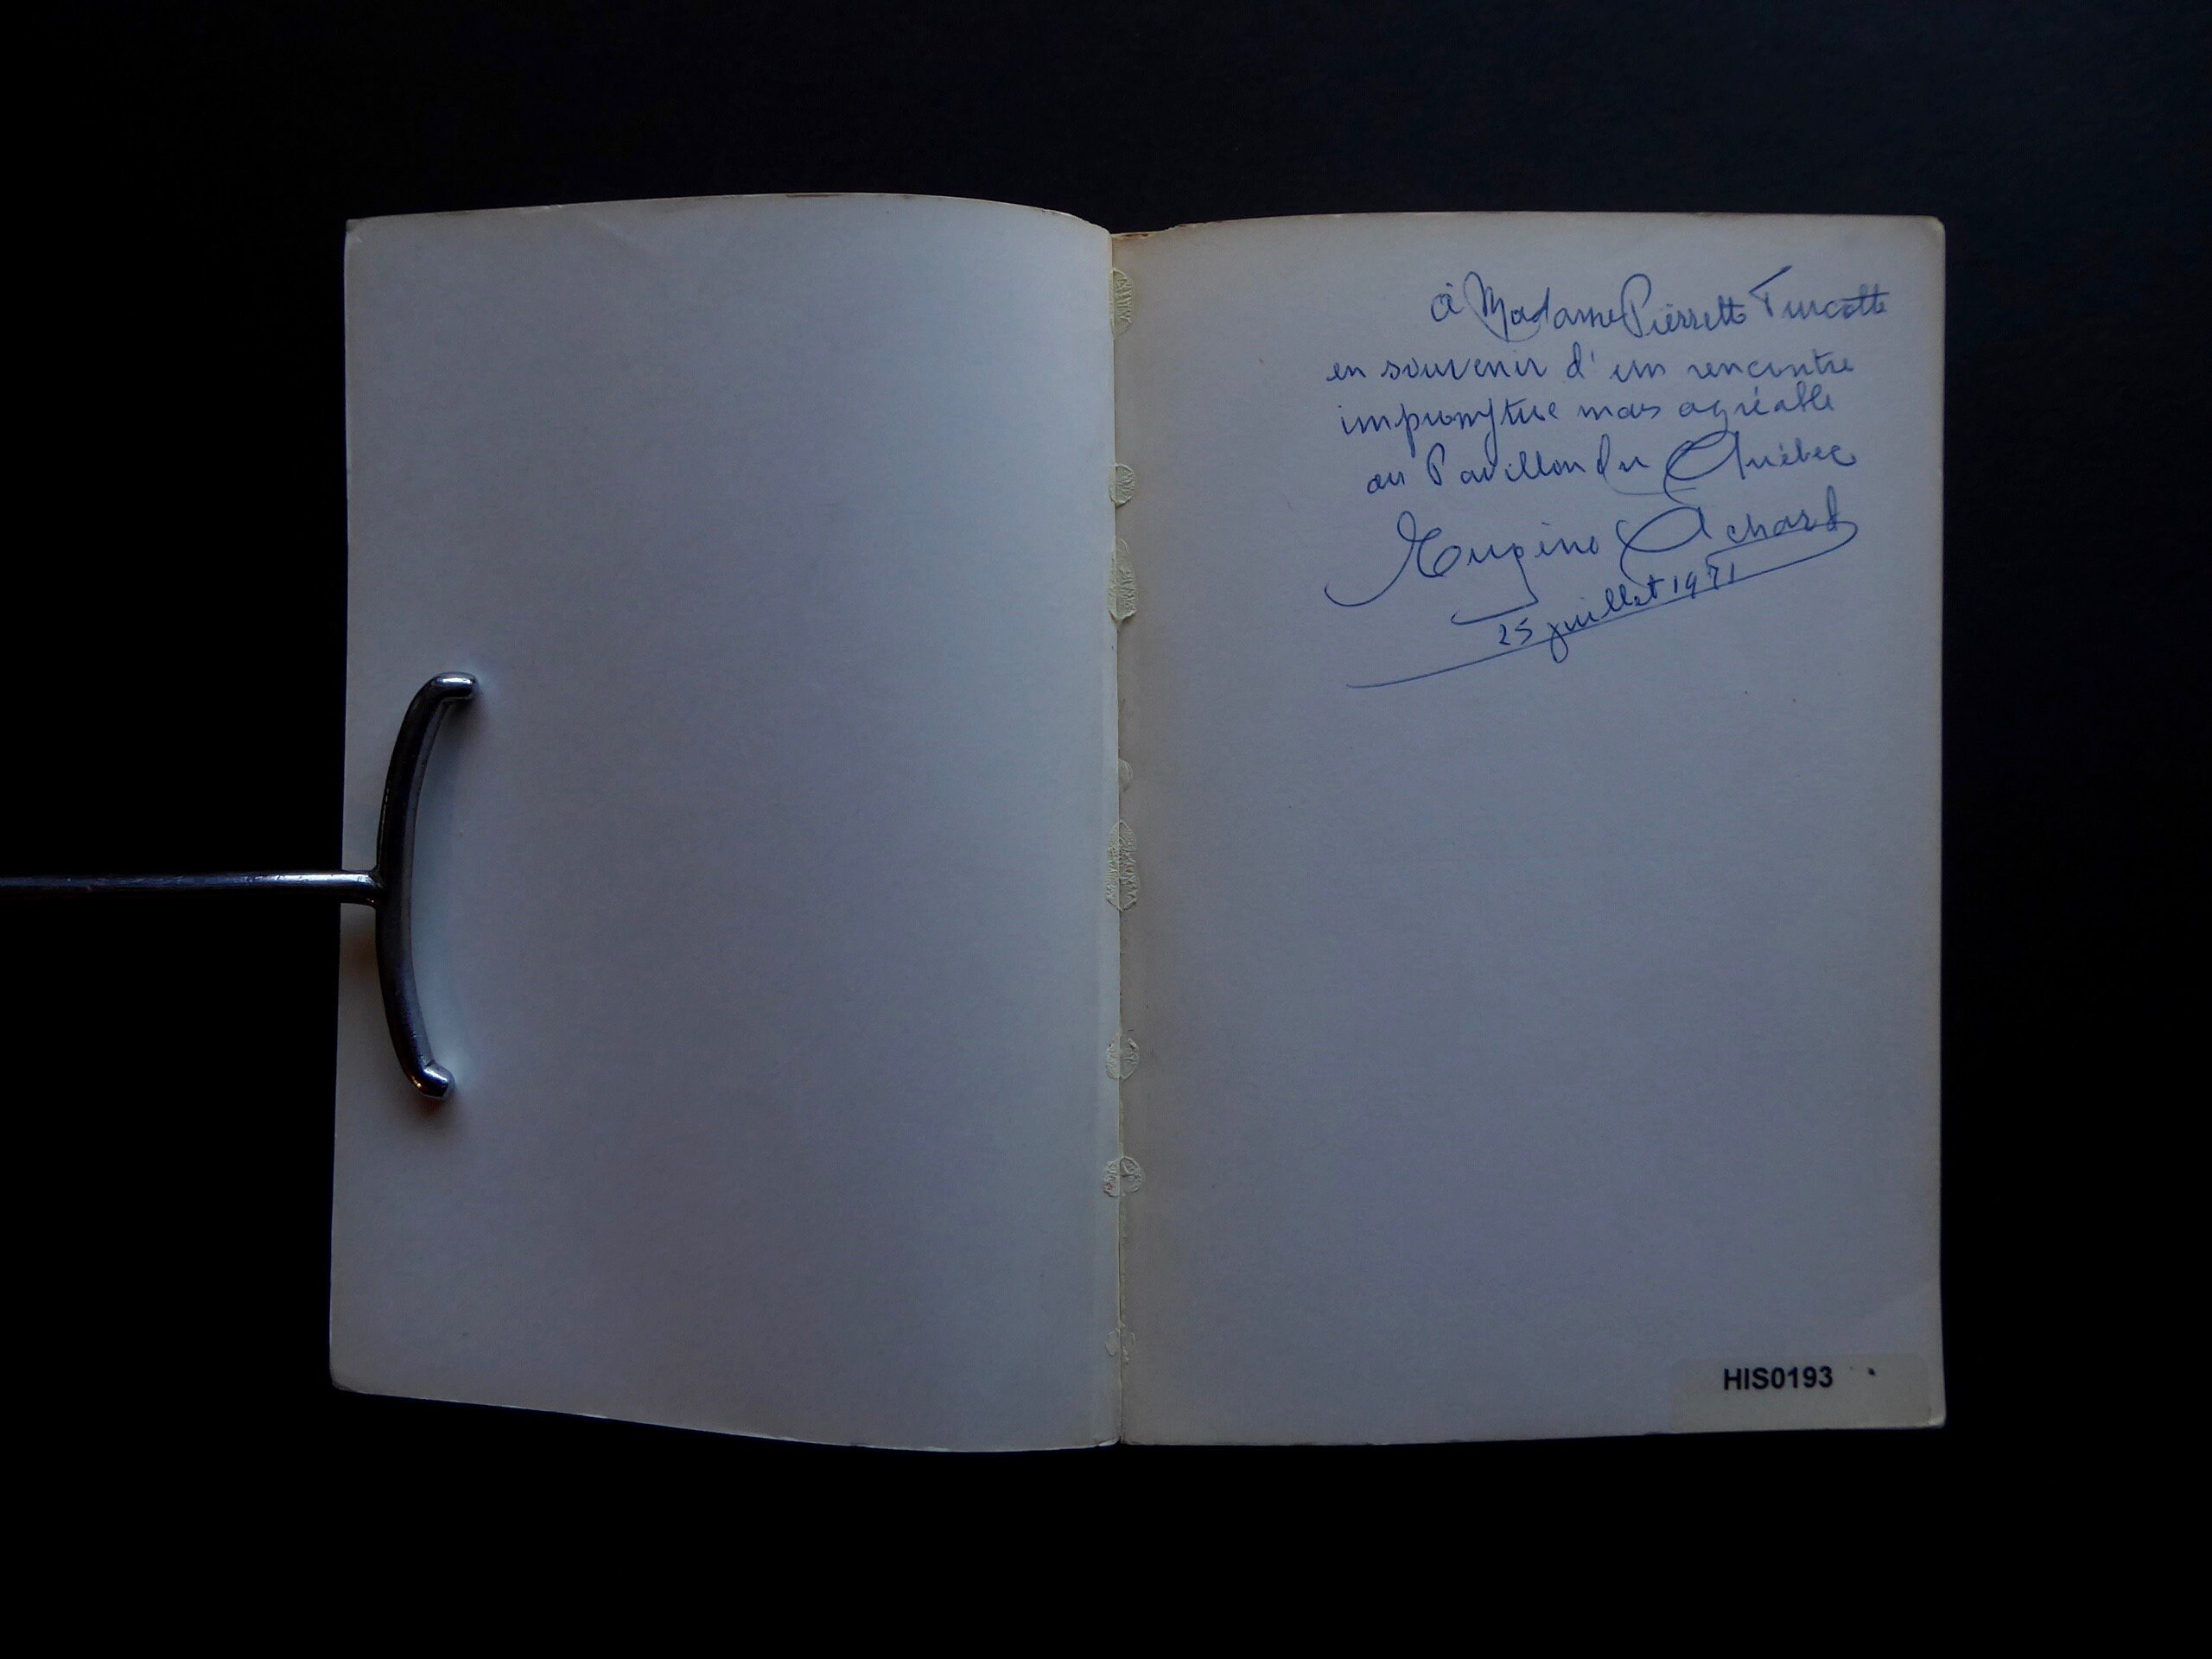 à Madame Pierrette Turcotte
en souvenir d'un rencontre
impromptue mais agréable
au Pavillon du Québec
Eugène Achard
25 juillet 1971
HIS0193